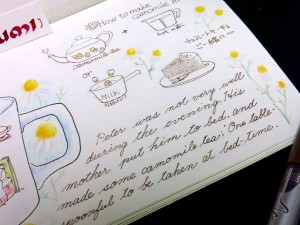 umi)
How to make
camomile tea
camomile tea
or
Milk
チョコレートケーキと
ご一緒に〜
Peter was not very well
during the evening. His
mother put him to bed, and
made some camomile tea: "One table-
spoonful to be taken at bed-time.